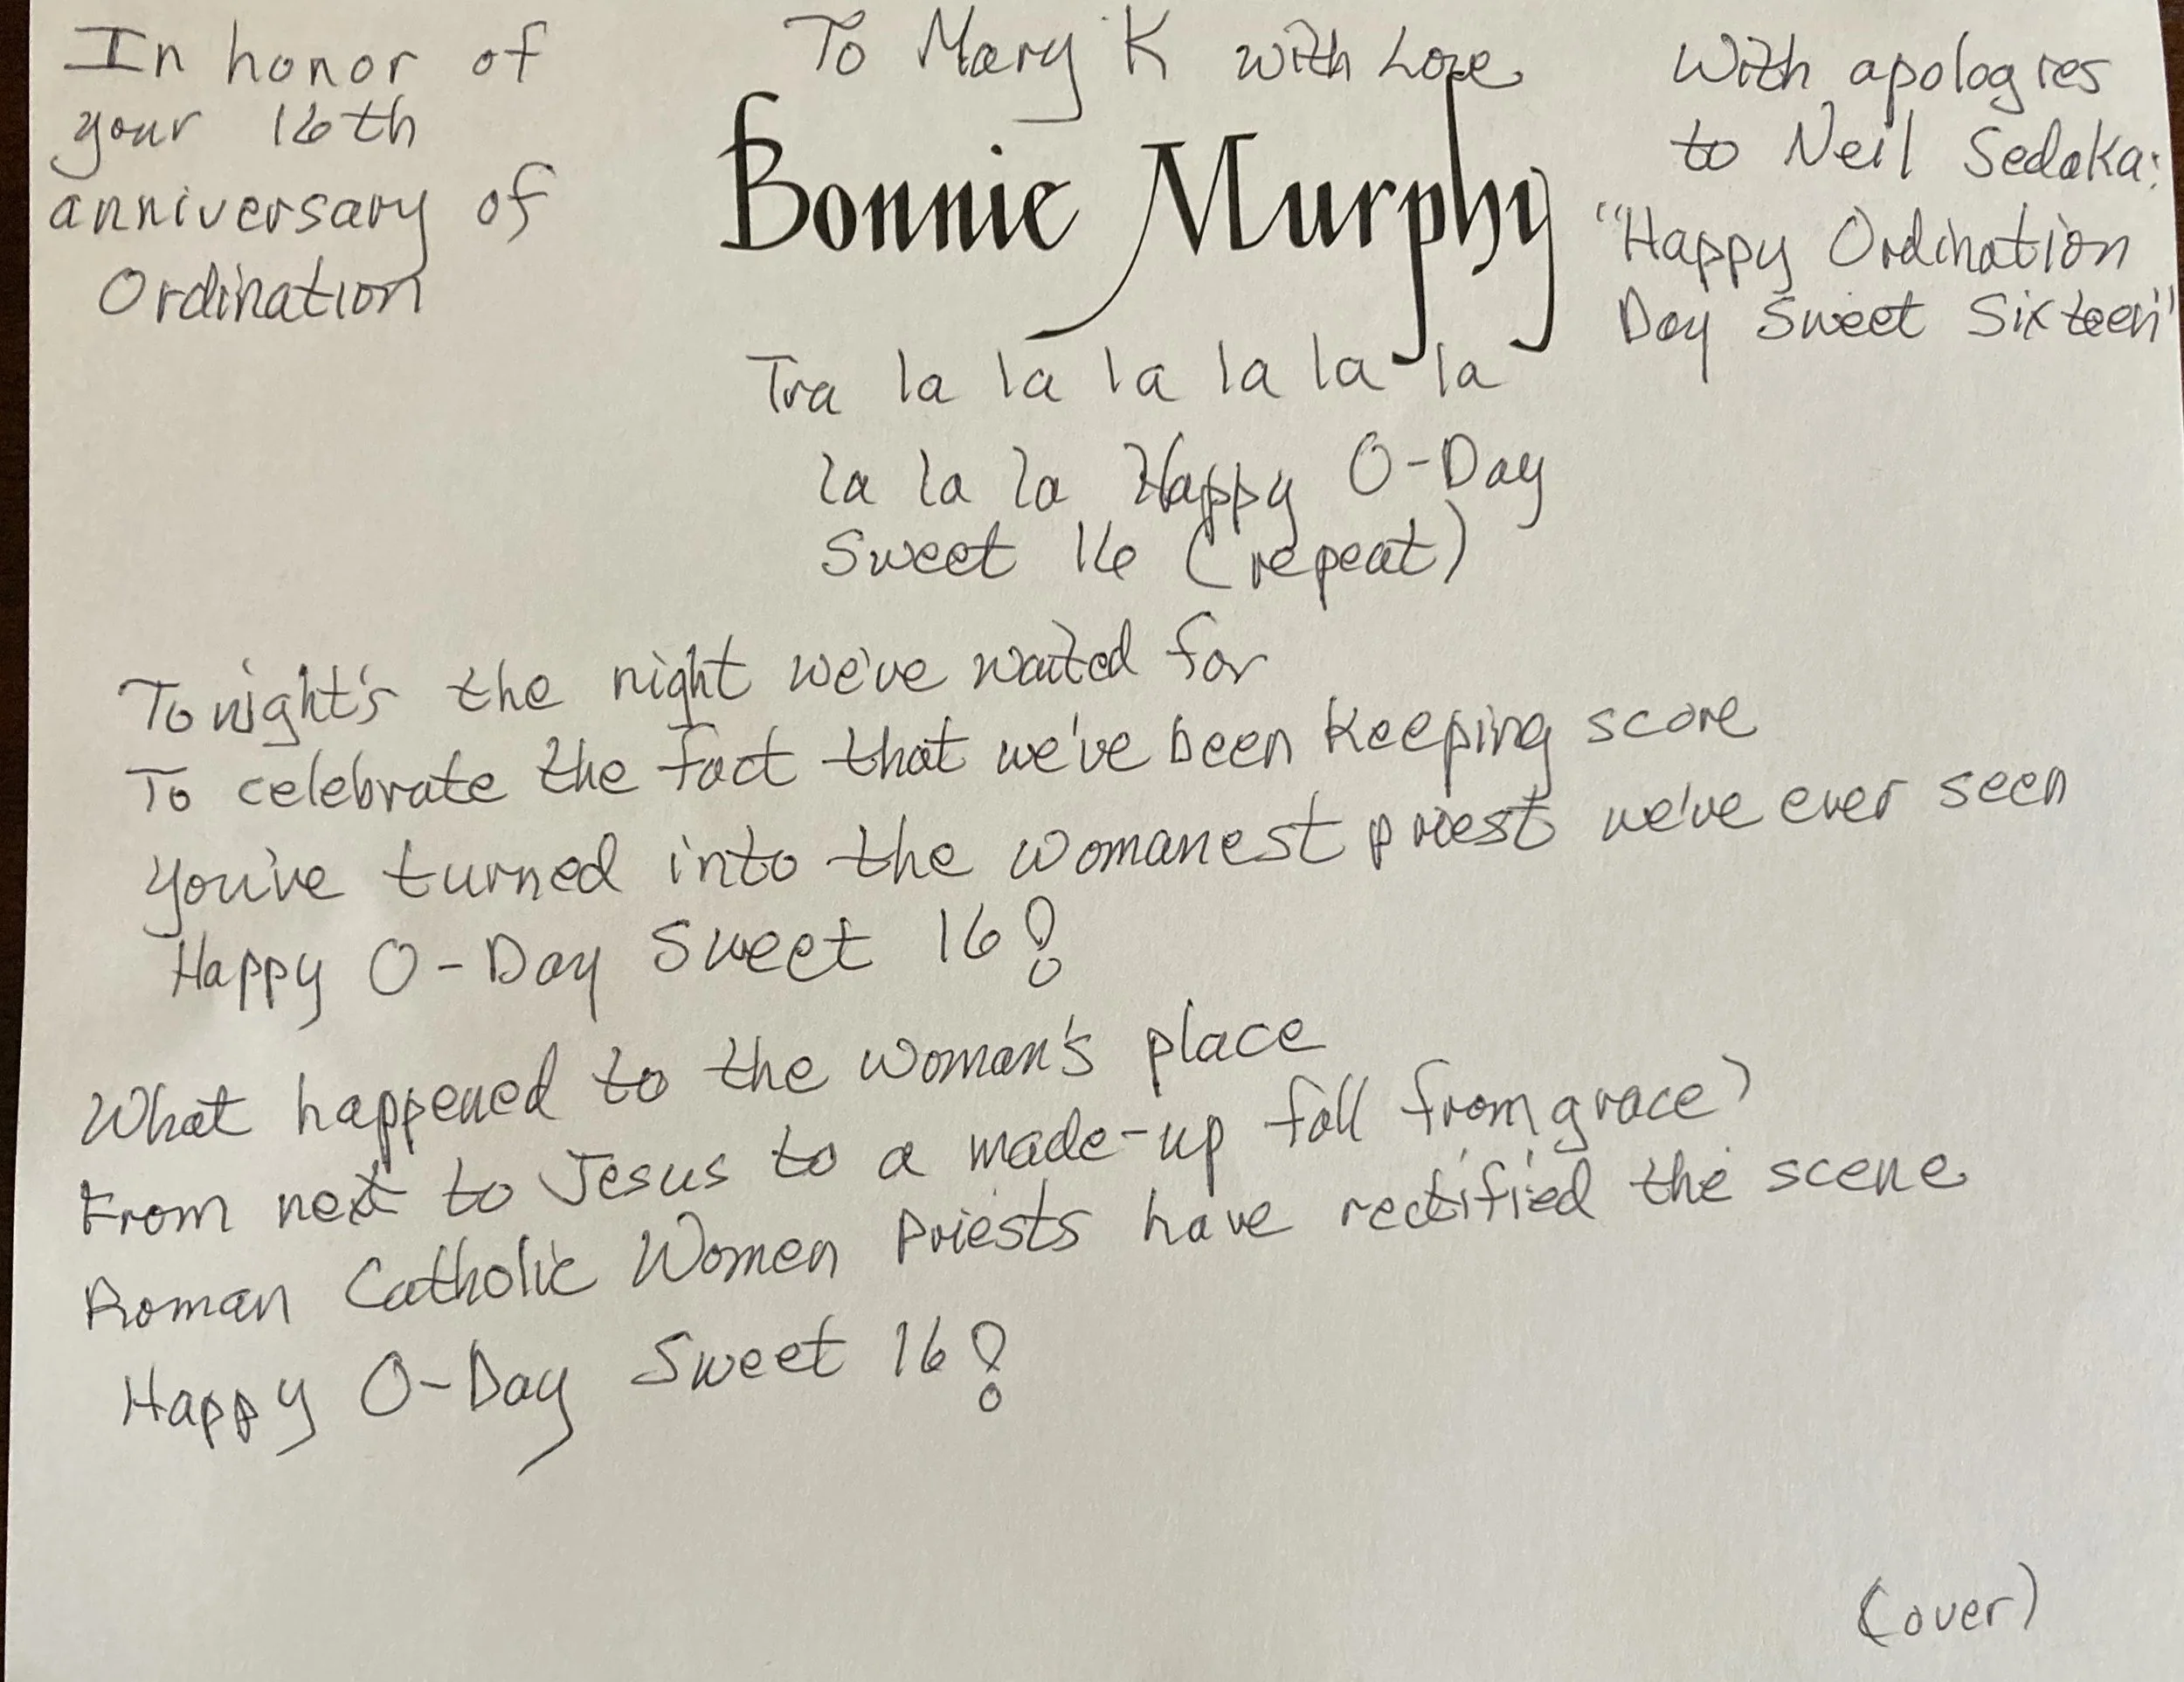 In honor of
your 16th
anniversary of
Ordination
To Mary K with Love
Bonnie Murphy
With apologies
to Neil Sedaka:
"Happy Ordination
Day Sweet Sixteen"
Tra la la la la la la
la la la Happy O-Day
Sweet 16 (repeat)
Tonight's the night we've waited for
To celebrate the fact that we've been keeping score
You've turned into the womanest priest we've ever seen
Happy O-Day Sweet 16!
What happened to the woman's place
From next to Jesus to a made-up fall from grace?
Roman Catholic Women Priests have rectified the scene
Happy O-Day Sweet 16!
(over)